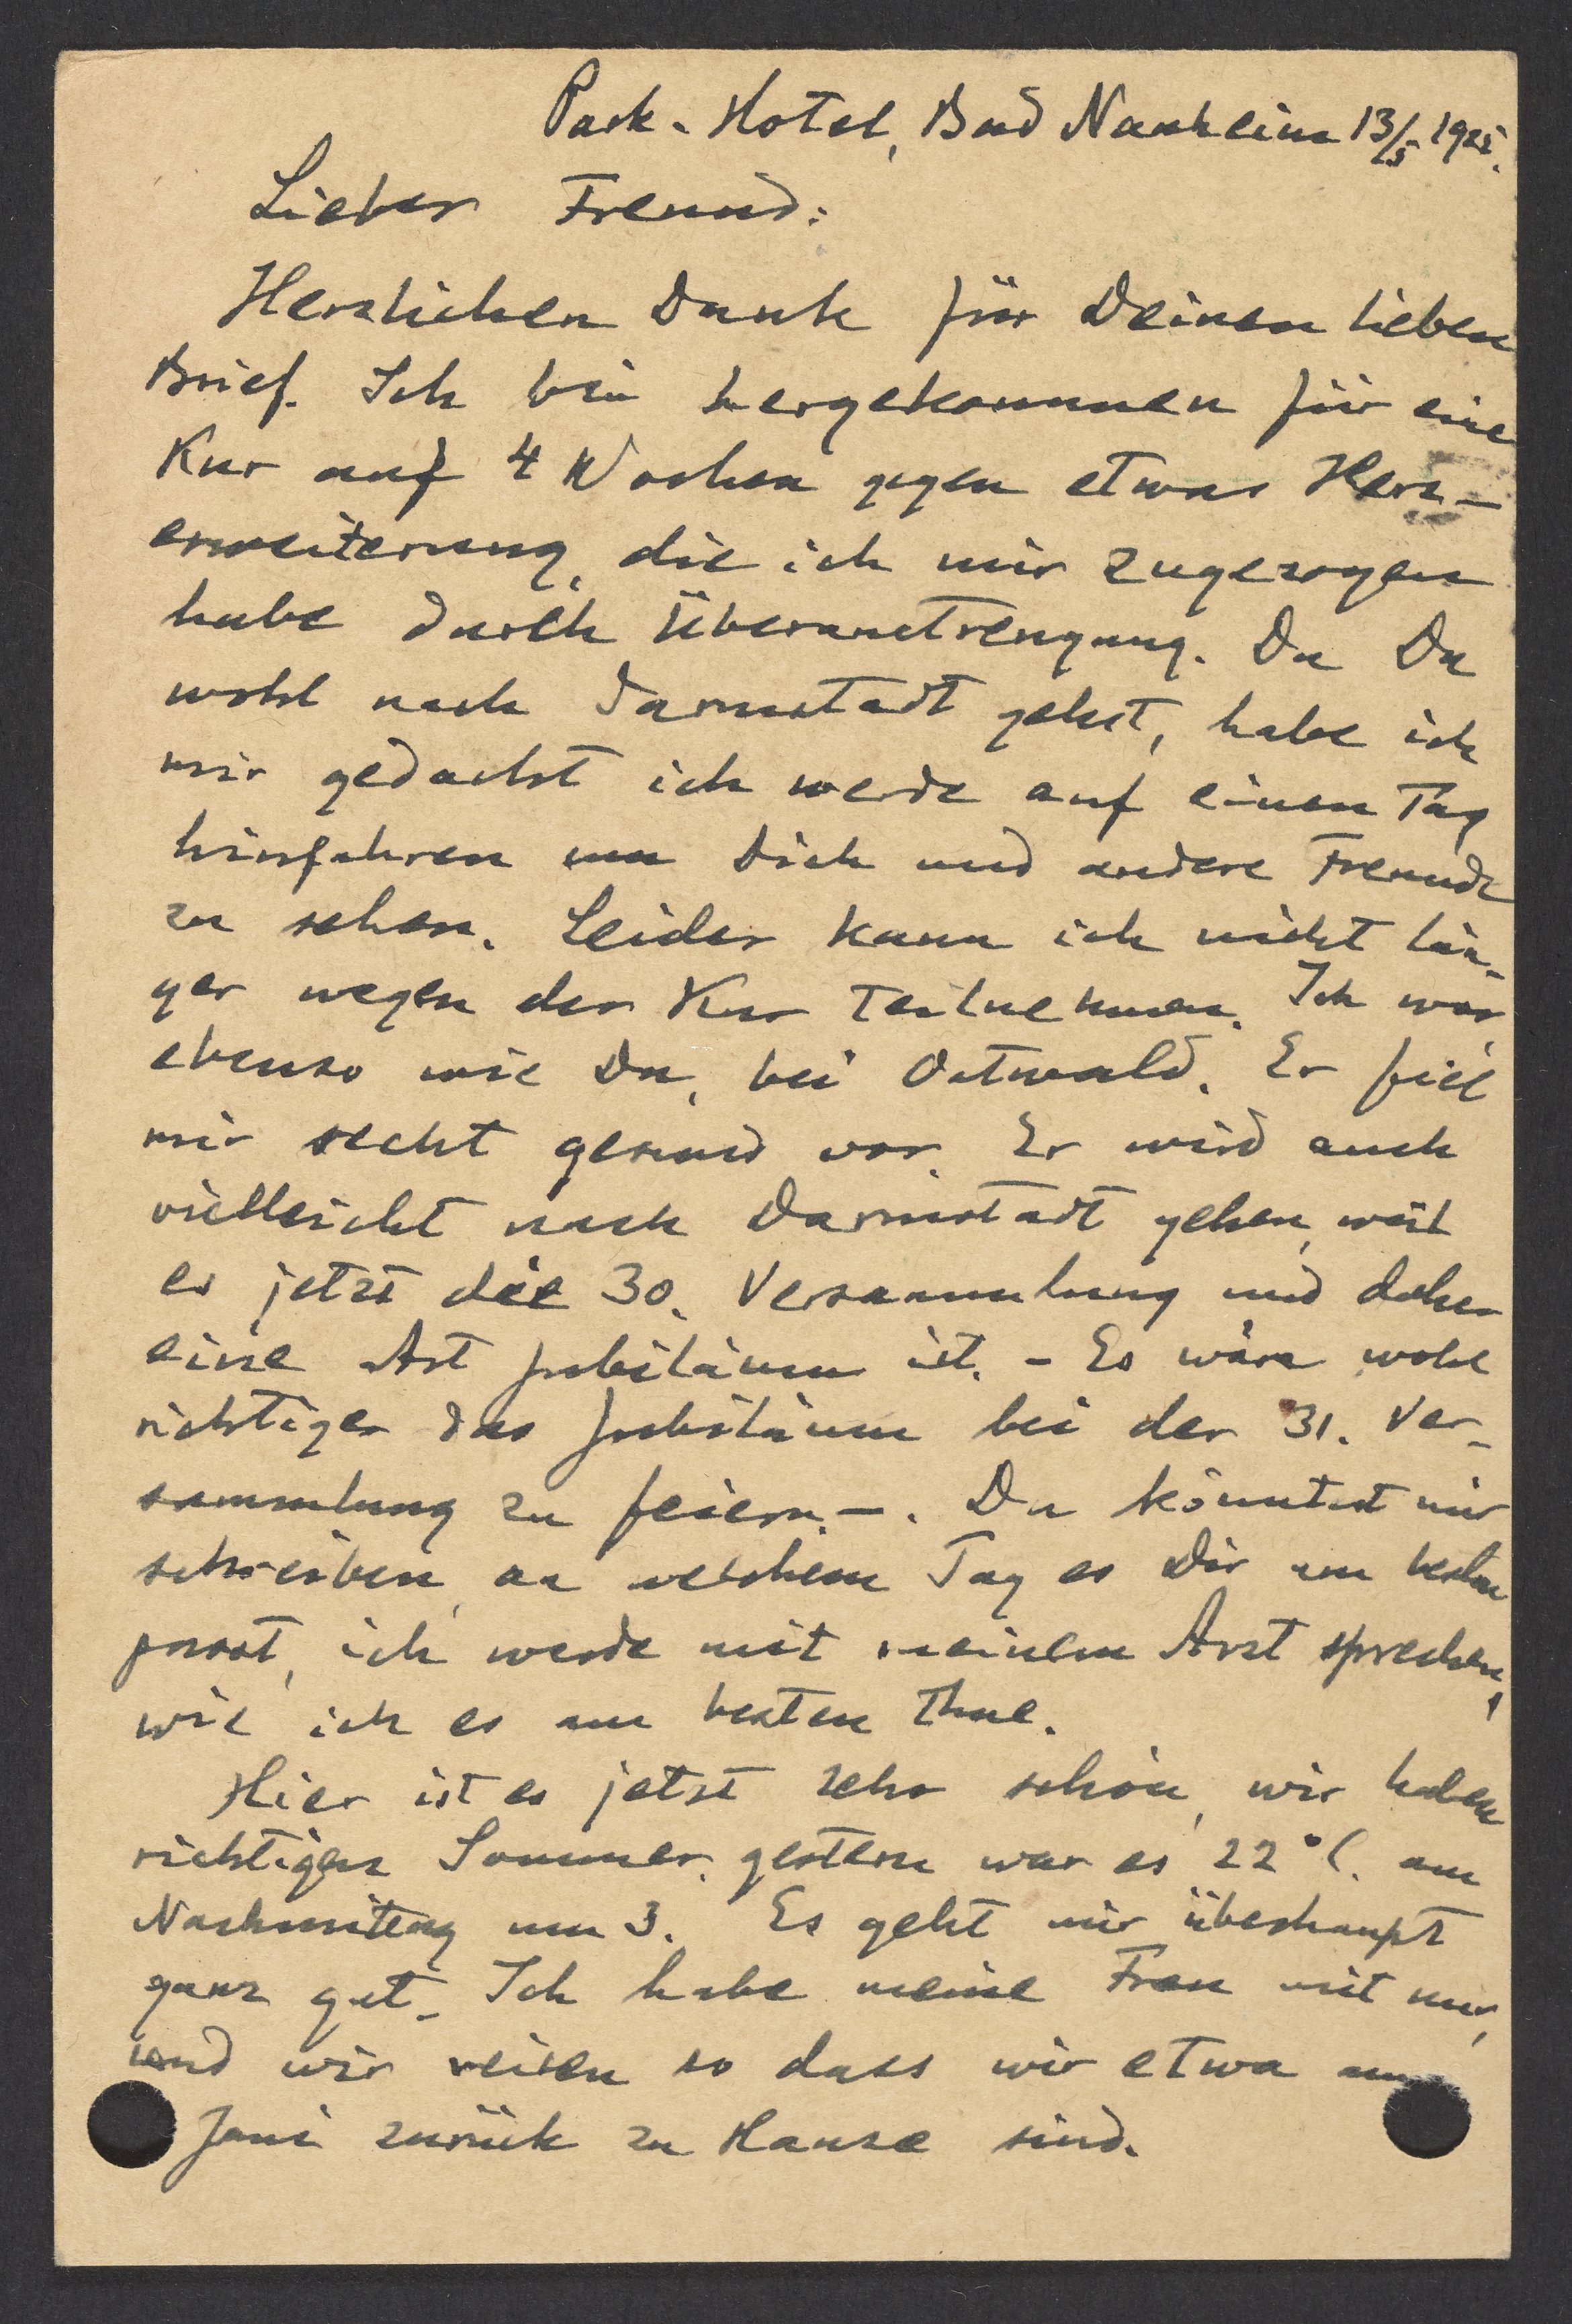 Park-Hotel, Bad Nauheim 13/5 1925.
Lieber Freund:
Herzlichen Dank für Deinen lieben
Brief. Ich bin hergekommen für eine
Kur auf 4 Wochen gegen etwas Herz-
erweiterung, die ich mir zugezogen
habe durch Überanstrengung. Da Du
wohl nach Darmstadt gehst, habe ich
mir gedacht ich werde auf einen Tag
hinfahren um Dich und andere Freunde
zu sehen. Leider kann ich nicht län-
ger wegen der Kur teilnehmen. Ich war,
ebenso wie Du, bei Ostwald. Er fiel
mir recht gesund vor. Er wird auch
vielleicht nach Darmstadt gehen, weil
es jetzt die 30. Versammlung und daher
eine Art Jubiläum ist. - Es wäre wohl
richtiger das Jubiläum bei der 31. Ver-
sammlung zu feiern. -. Du könntest mir
schreiben, an welchem Tag es Dir am besten
passt, ich werde mit meinem Arzt sprechen,
wie ich es am besten thue.
Hier ist es jetzt sehr schön, wir haben
richtigen Sommer, gestern war es 22° C. am
Nachmittag um 3. Es geht mir überhaupt
ganz gut. Ich habe meine Frau mit mir,
und wir reisen so dass wir etwa am
Juni zurück zu Hause sind.